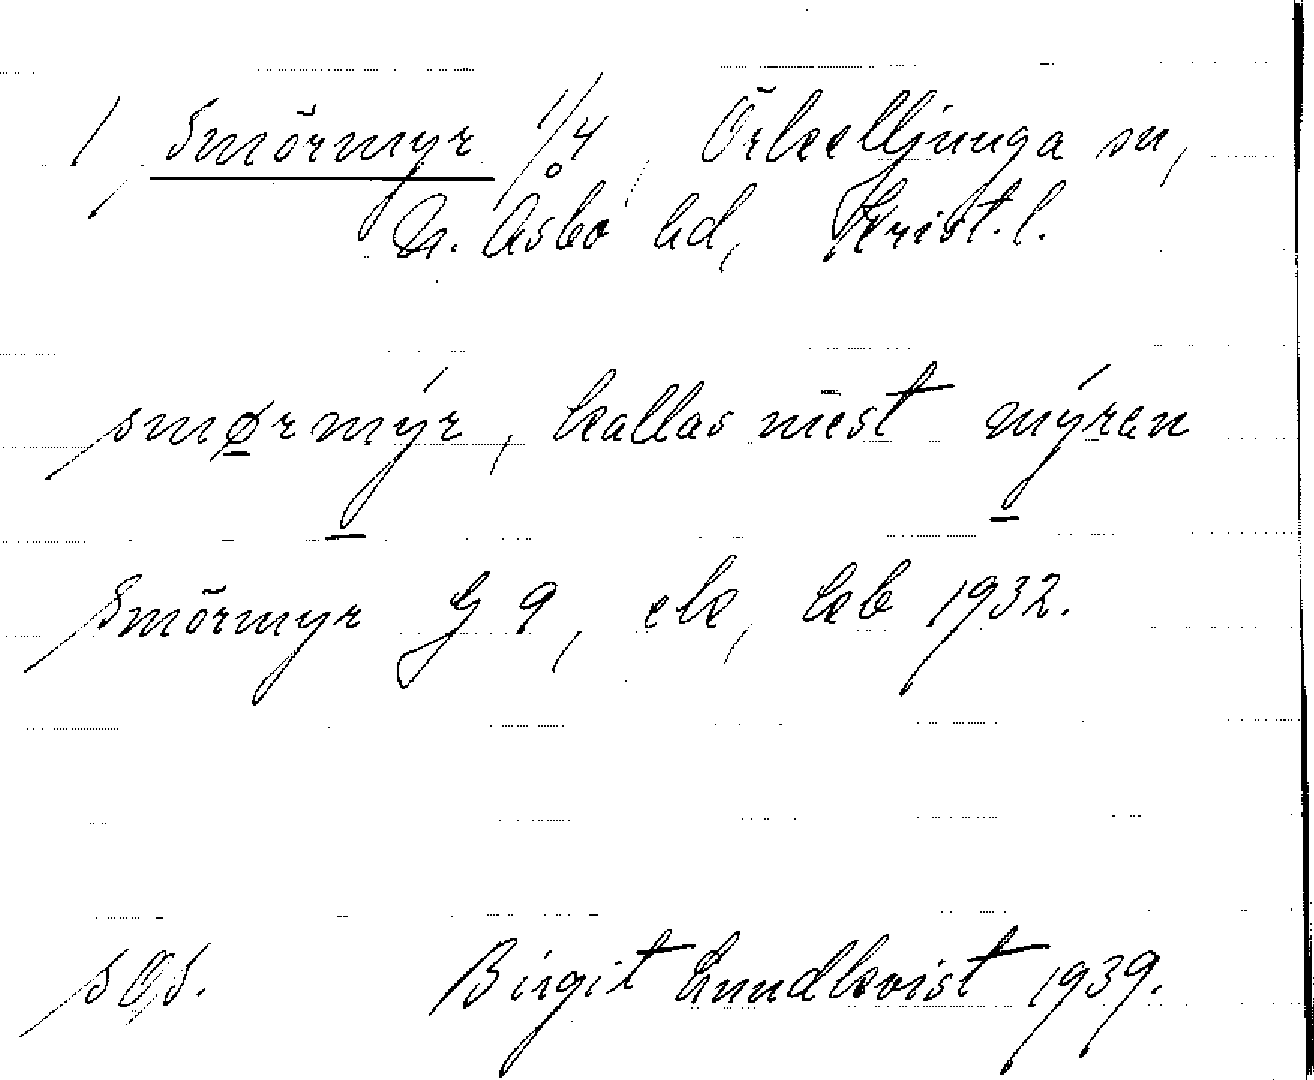 1 Smörmyr 1/4, Örkelljunga sn,
N. Åsbo hd, Krist. l.
smø̱rmýr, kallas mest mýran
Smörmyr G 9, ek, kb 1932.
s Os. Birgit Lundkvist 1939.